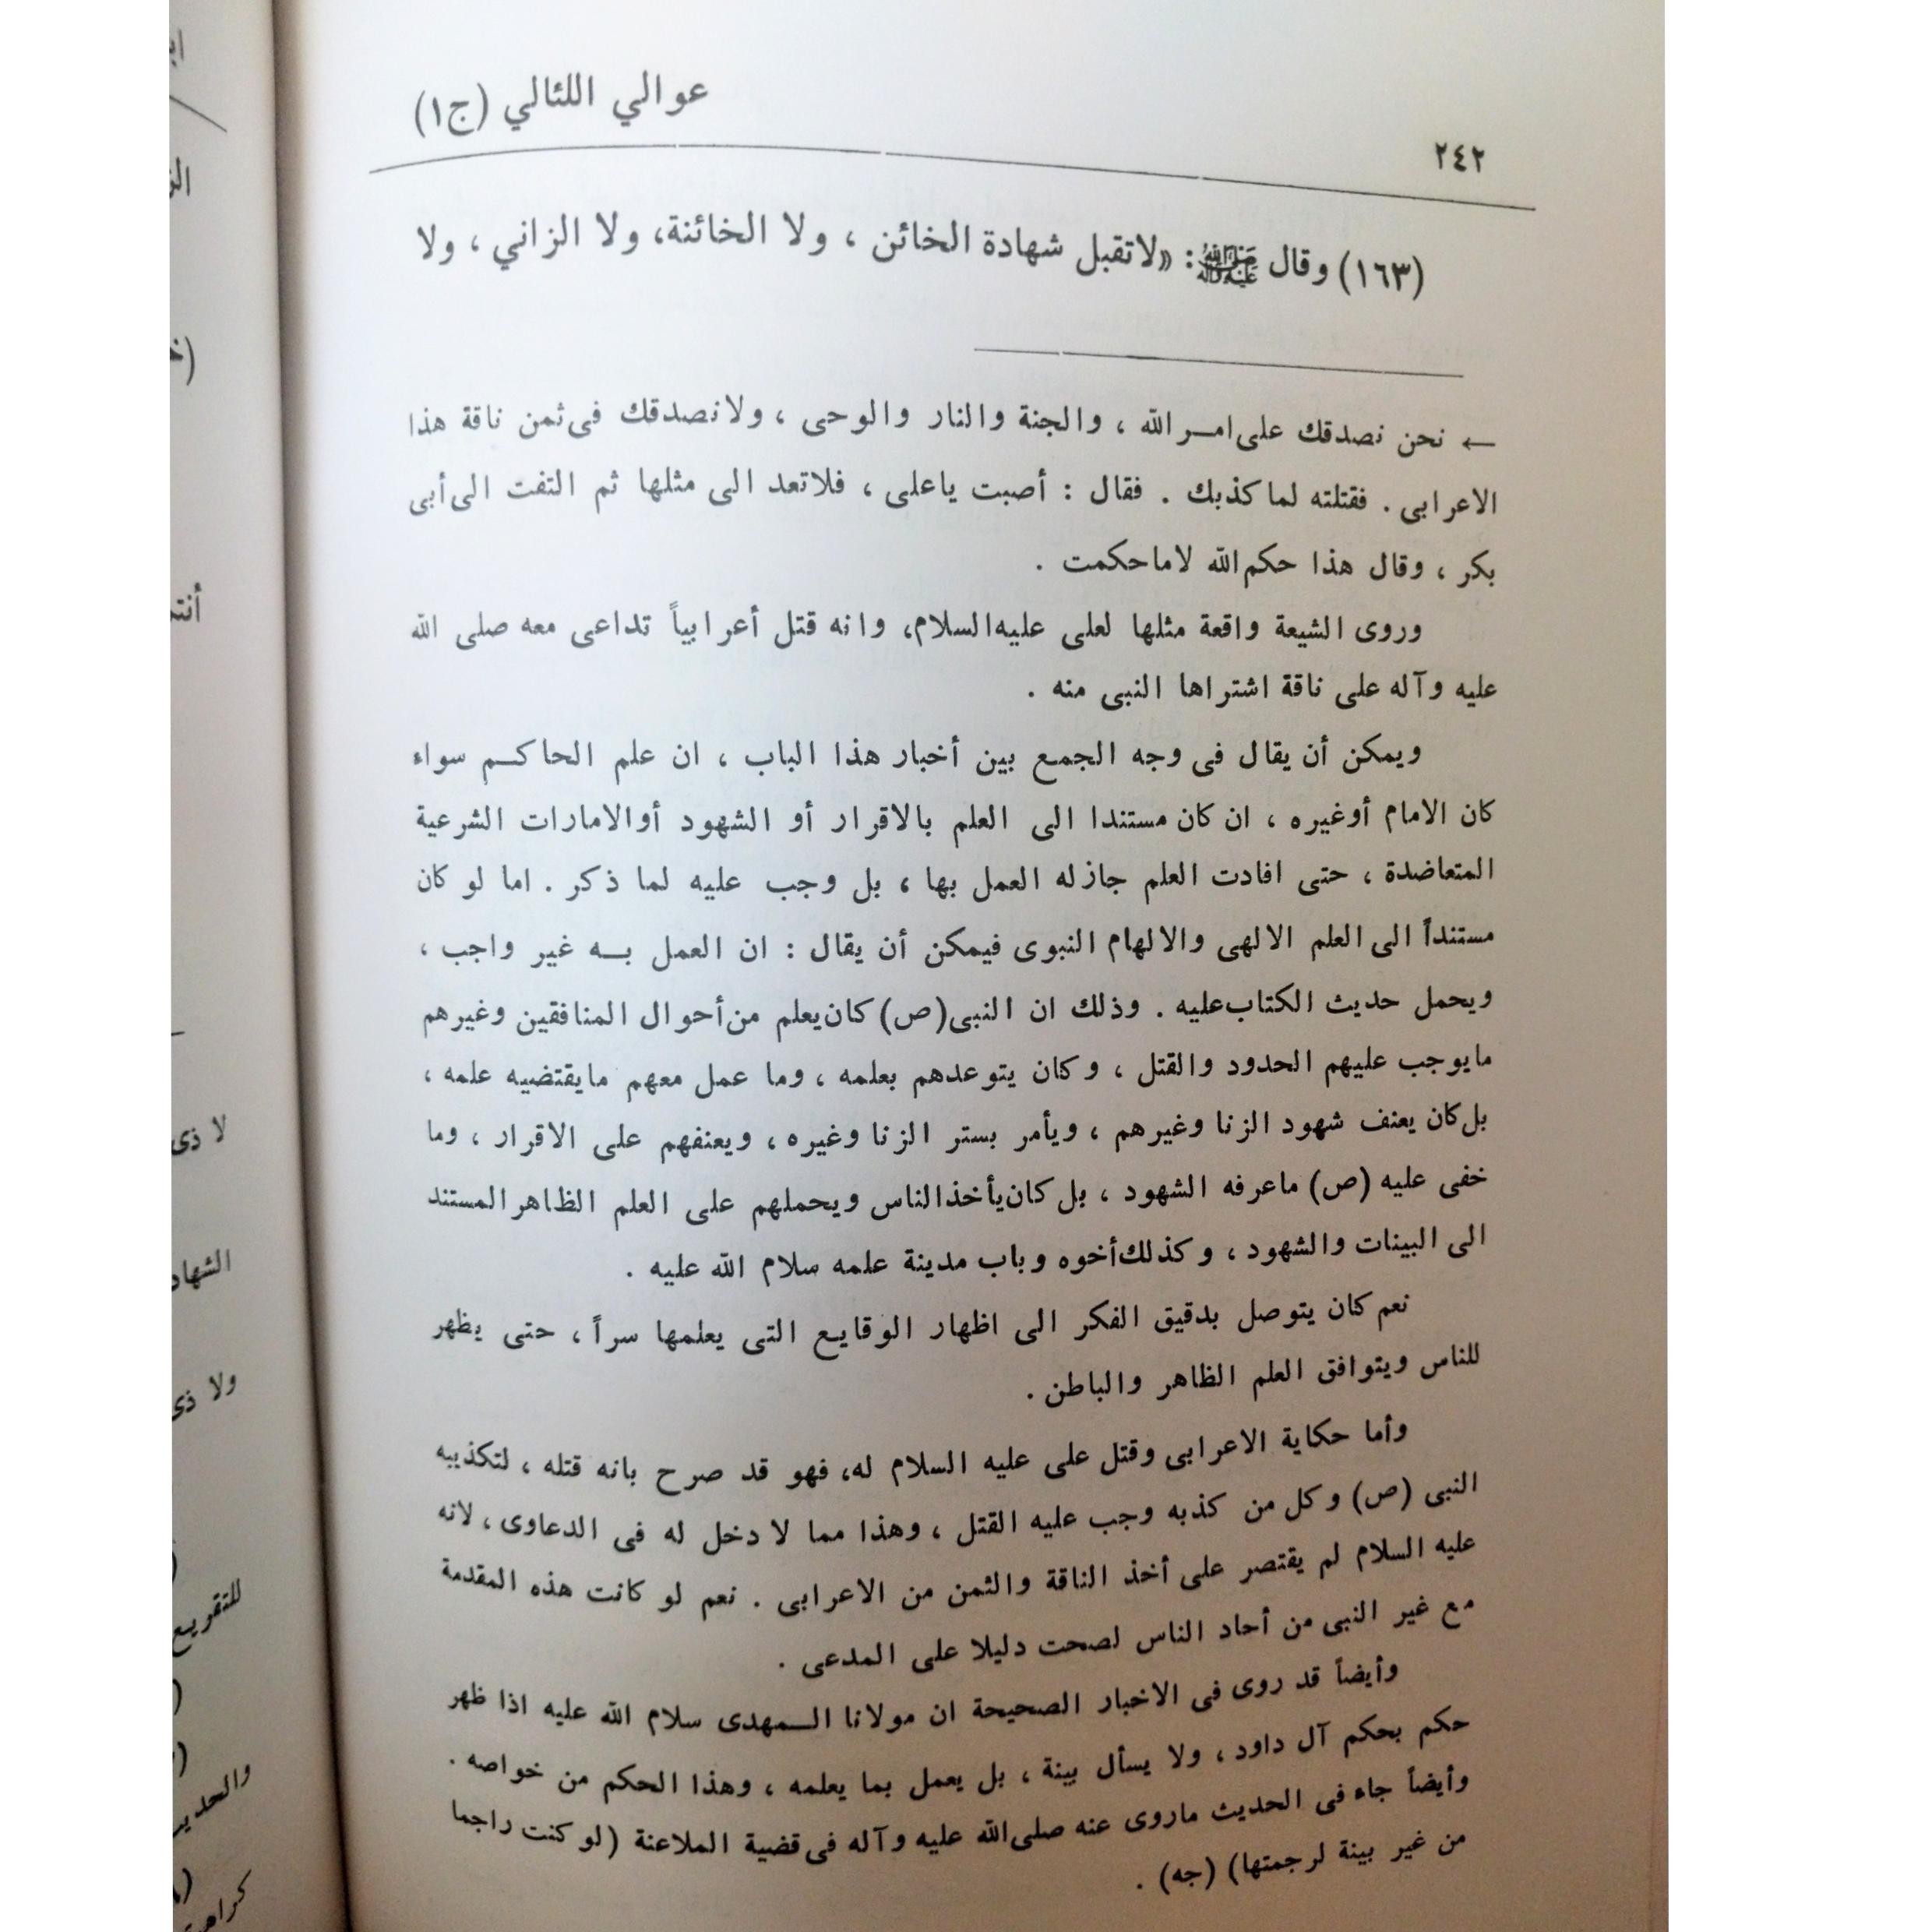 عوالي اللئالي (ج١)
٢٤٢
(١٦٣) وقال ﷺ: «لاتقبل شهادة الخائن ، ولا الخائنة، ولا الزاني ، ولا
← نحن نصدقك على امـر الله ، والجنة والنار والوحى ، ولانصدقك فى ثمن ناقة هذا
الاعرابى . فقتلته لما كذبك . فقال : أصبت ياعلى ، فلاتعد الى مثلها ثم التفت الى أبى
بكر ، وقال هذا حكم الله لاماحكمت .
وروى الشيعة واقعة مثلها لعلى عليه السلام، وانه قتل أعرابياً تداعى معه صلى الله
عليه وآله على ناقة اشتراها النبى منه .
ويمكن أن يقال فى وجه الجمع بين أخبار هذا الباب ، ان علم الحاكـم سواء
كان الامام أوغيره ، ان كان مستندا الى العلم بالاقرار أو الشهود أوالامارات الشرعية
المتعاضدة ، حتى افادت العلم جازله العمل بها ، بل وجب عليه لما ذكر . اما لو كان
مستنداً الى العلم الالهى والالهام النبوى فيمكن أن يقال : ان العمل بـه غير واجب ،
ويحمل حديث الكتاب عليه . وذلك ان النبى (ص) كان يعلم من أحوال المنافقين وغيرهم
مايوجب عليهم الحدود والقتل ، وكان يتوعدهم بعلمه ، وما عمل معهم مايقتضيه علمه ،
بل كان يعنف شهود الزنا وغيرهم ، ويأمر بستر الزنا وغيره ، ويعنفهم على الاقرار ، وما
خفى عليه (ص) ماعرفه الشهود ، بل كان يأخذ الناس ويحملهم على العلم الظاهر المستند
الى البينات والشهود ، وكذلك أخوه وباب مدينة علمه سلام الله عليه .
نعم كان يتوصل بدقيق الفكر الى اظهار الوقايع التى يعلمها سراً ، حتى يظهر
للناس ويتوافق العلم الظاهر والباطن .
وأما حكاية الاعرابى وقتل على عليه السلام له، فهو قد صرح بانه قتله ، لتكذيبه
النبى (ص) وكل من كذبه وجب عليه القتل ، وهذا مما لا دخل له فى الدعاوى ، لانه
عليه السلام لم يقتصر على أخذ الناقة والثمن من الاعرابى . نعم لو كانت هذه المقدمة
مع غير النبى من أحاد الناس لصحت دليلا على المدعى .
وأيضاً قد روى فى الاخبار الصحيحة ان مولانا الـمهدى سلام الله عليه اذا ظهر
حكم بحكم آل داود ، ولا يسأل بينة ، بل يعمل بما يعلمه ، وهذا الحكم من خواصه .
وأيضاً جاء فى الحديث ماروى عنه صلى الله عليه وآله فى قضية الملاعنة (لو كنت راجما
من غير بينة لرجمتها) (جه) .
أنتم
لا ذى
الشهاد
ولا ذى
للتقريع
والحديـ